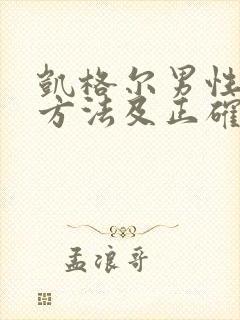 凯格尔男性
方法及正确
孟浪哥